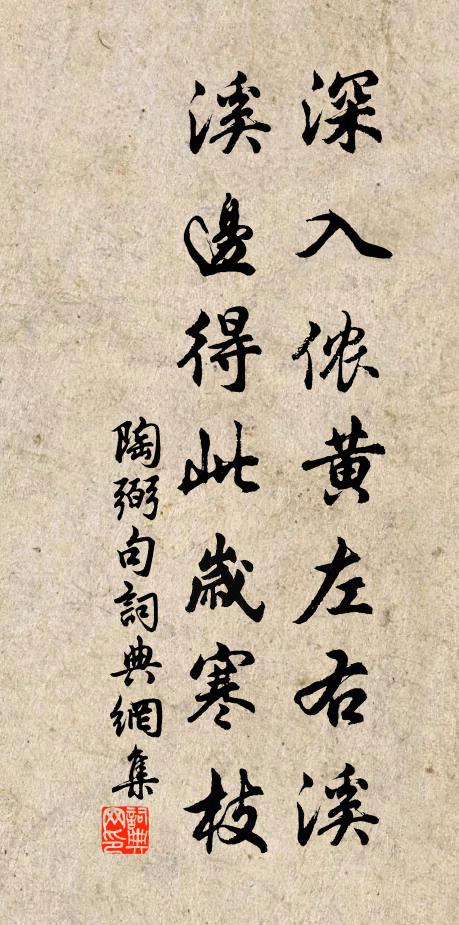 深入侬黄左右溪
溪邊得此歲寒枝
陶弼句詞典網集
詞典网印